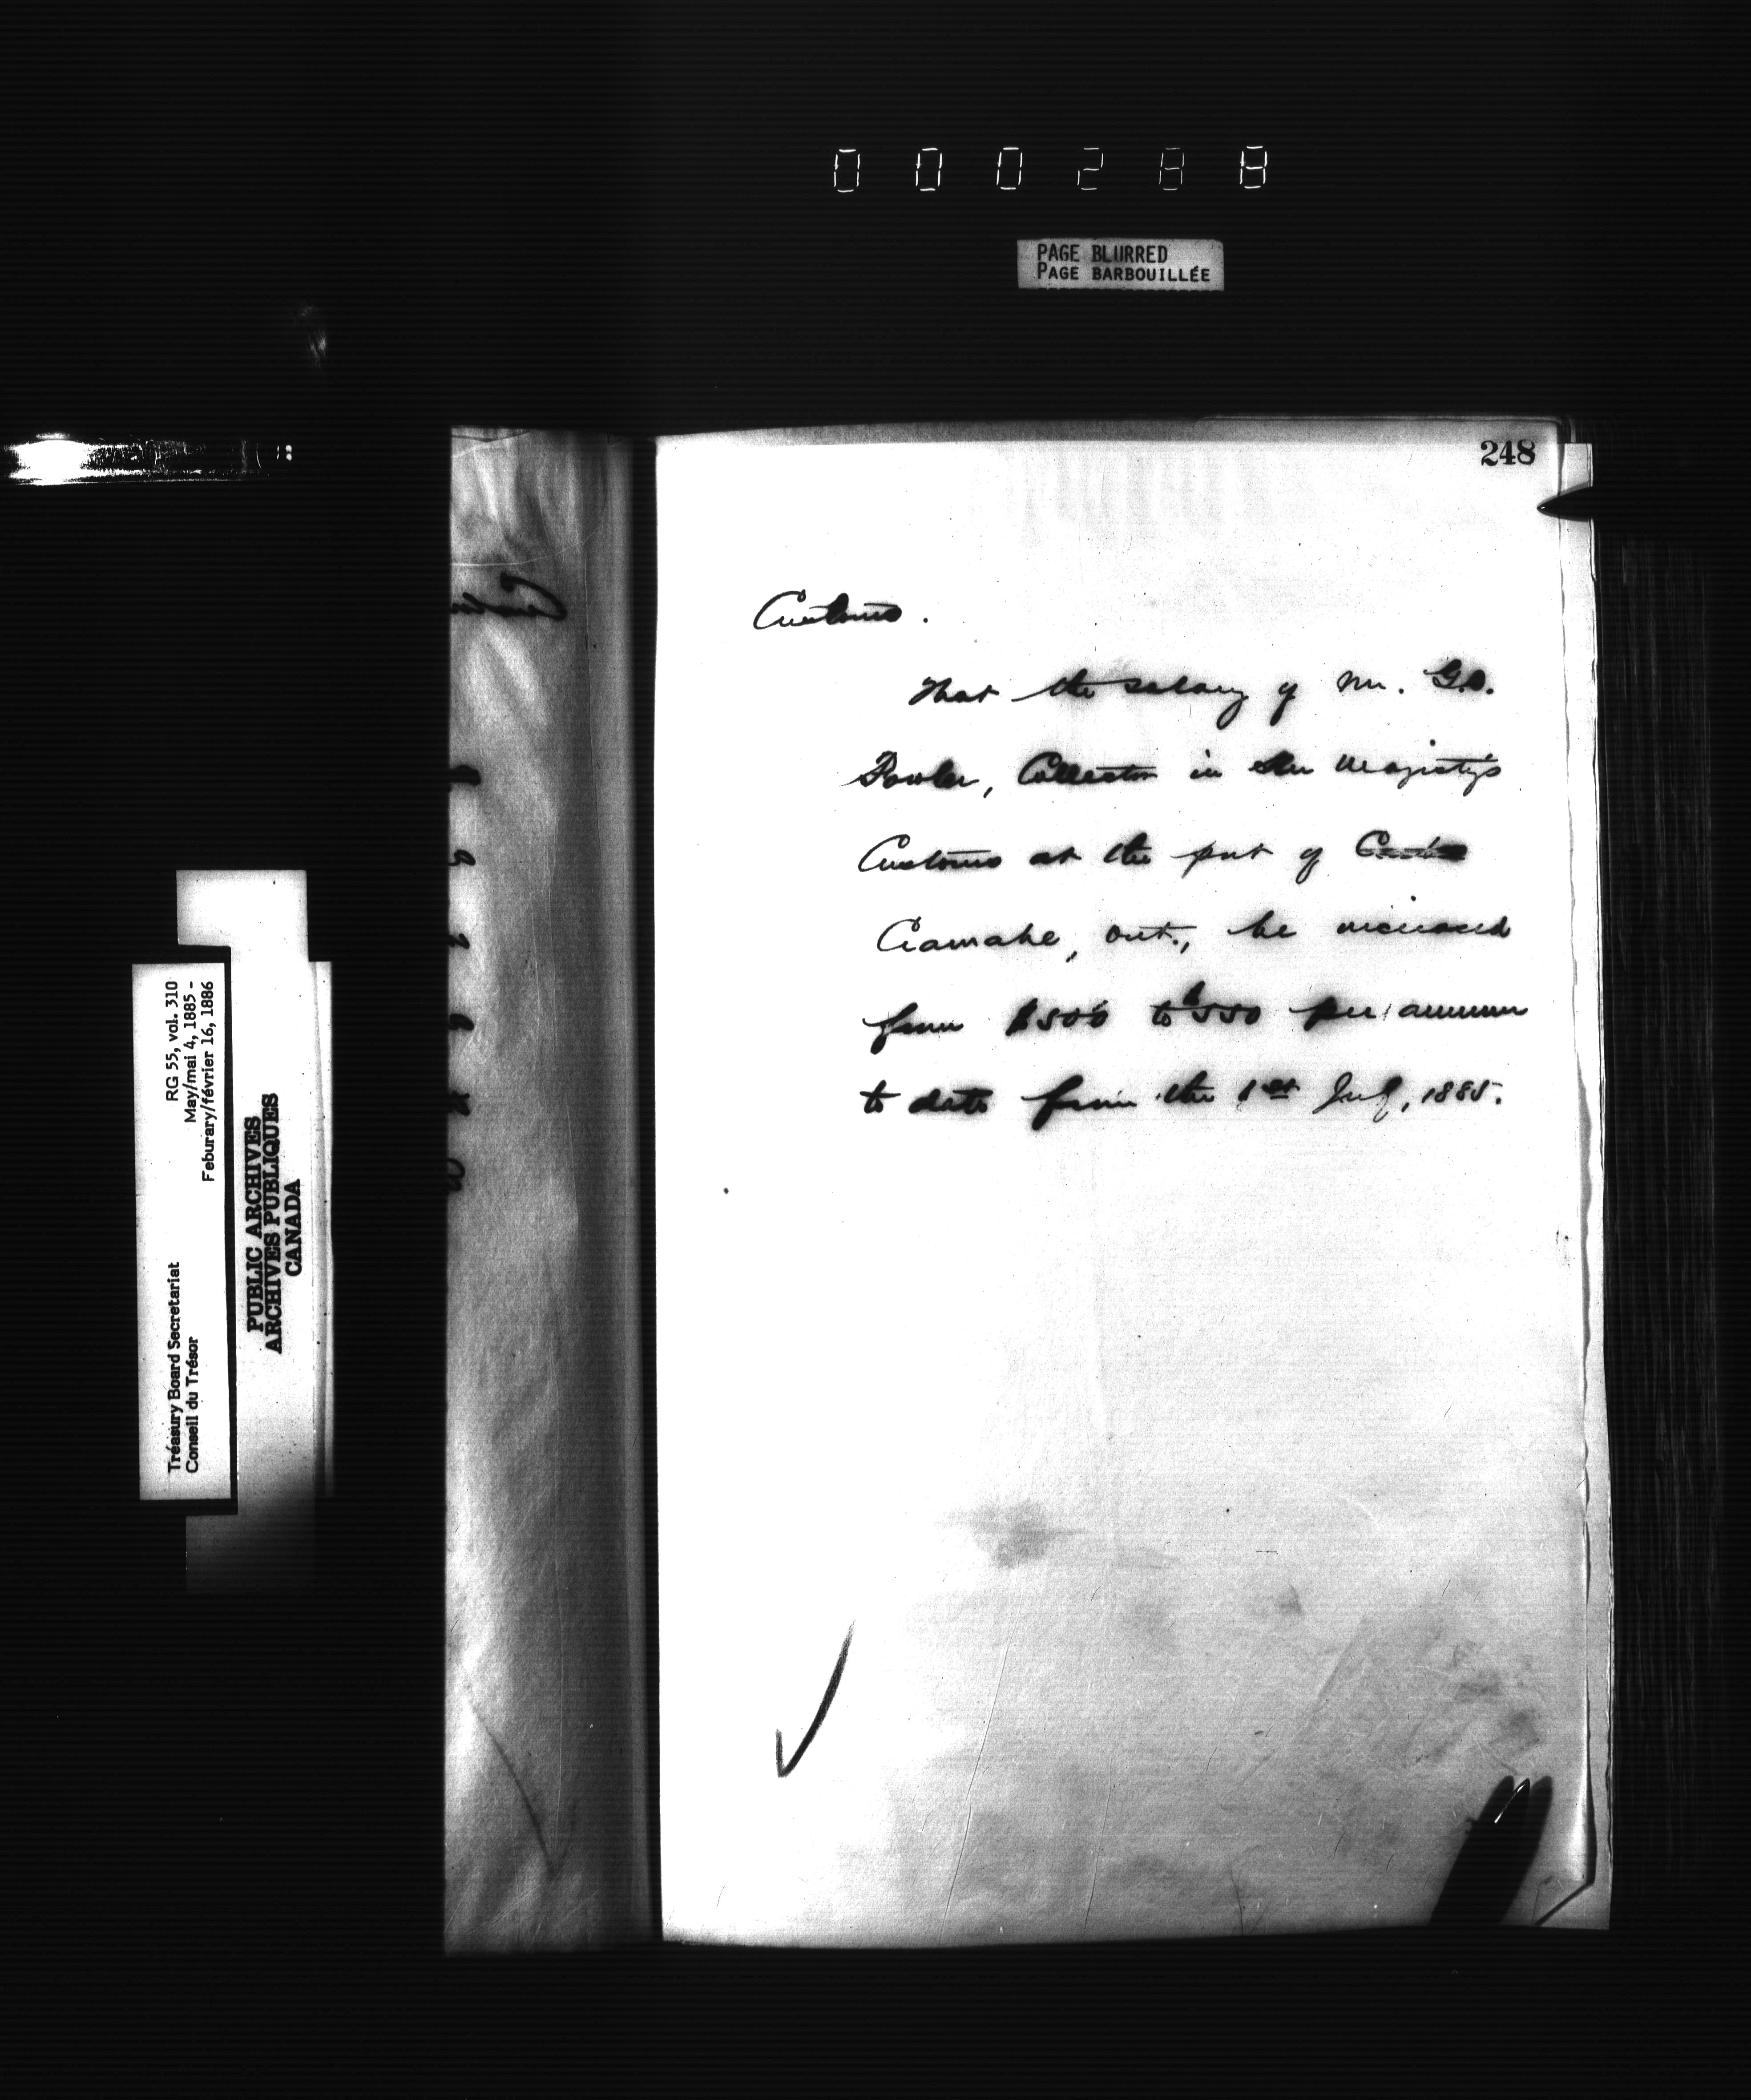 000288
PAGE BLURRED
PAGE BARBOUILLÉE
248
Customs.
That the salary of Mr. G.O.
Fowler, Collector in Her Majesty's
Customs at the port of
Cramahe, Ont., be increased
from $500 to $550 per annum
to date from the 1st July, 1885.
RG 55, vol. 310
May/mai 4, 1885 -
Feburary/février 16, 1886
Treasury Board Secretariat
Conseil du Trésor
PUBLIC ARCHIVES
ARCHIVES PUBLIQUES
CANADA